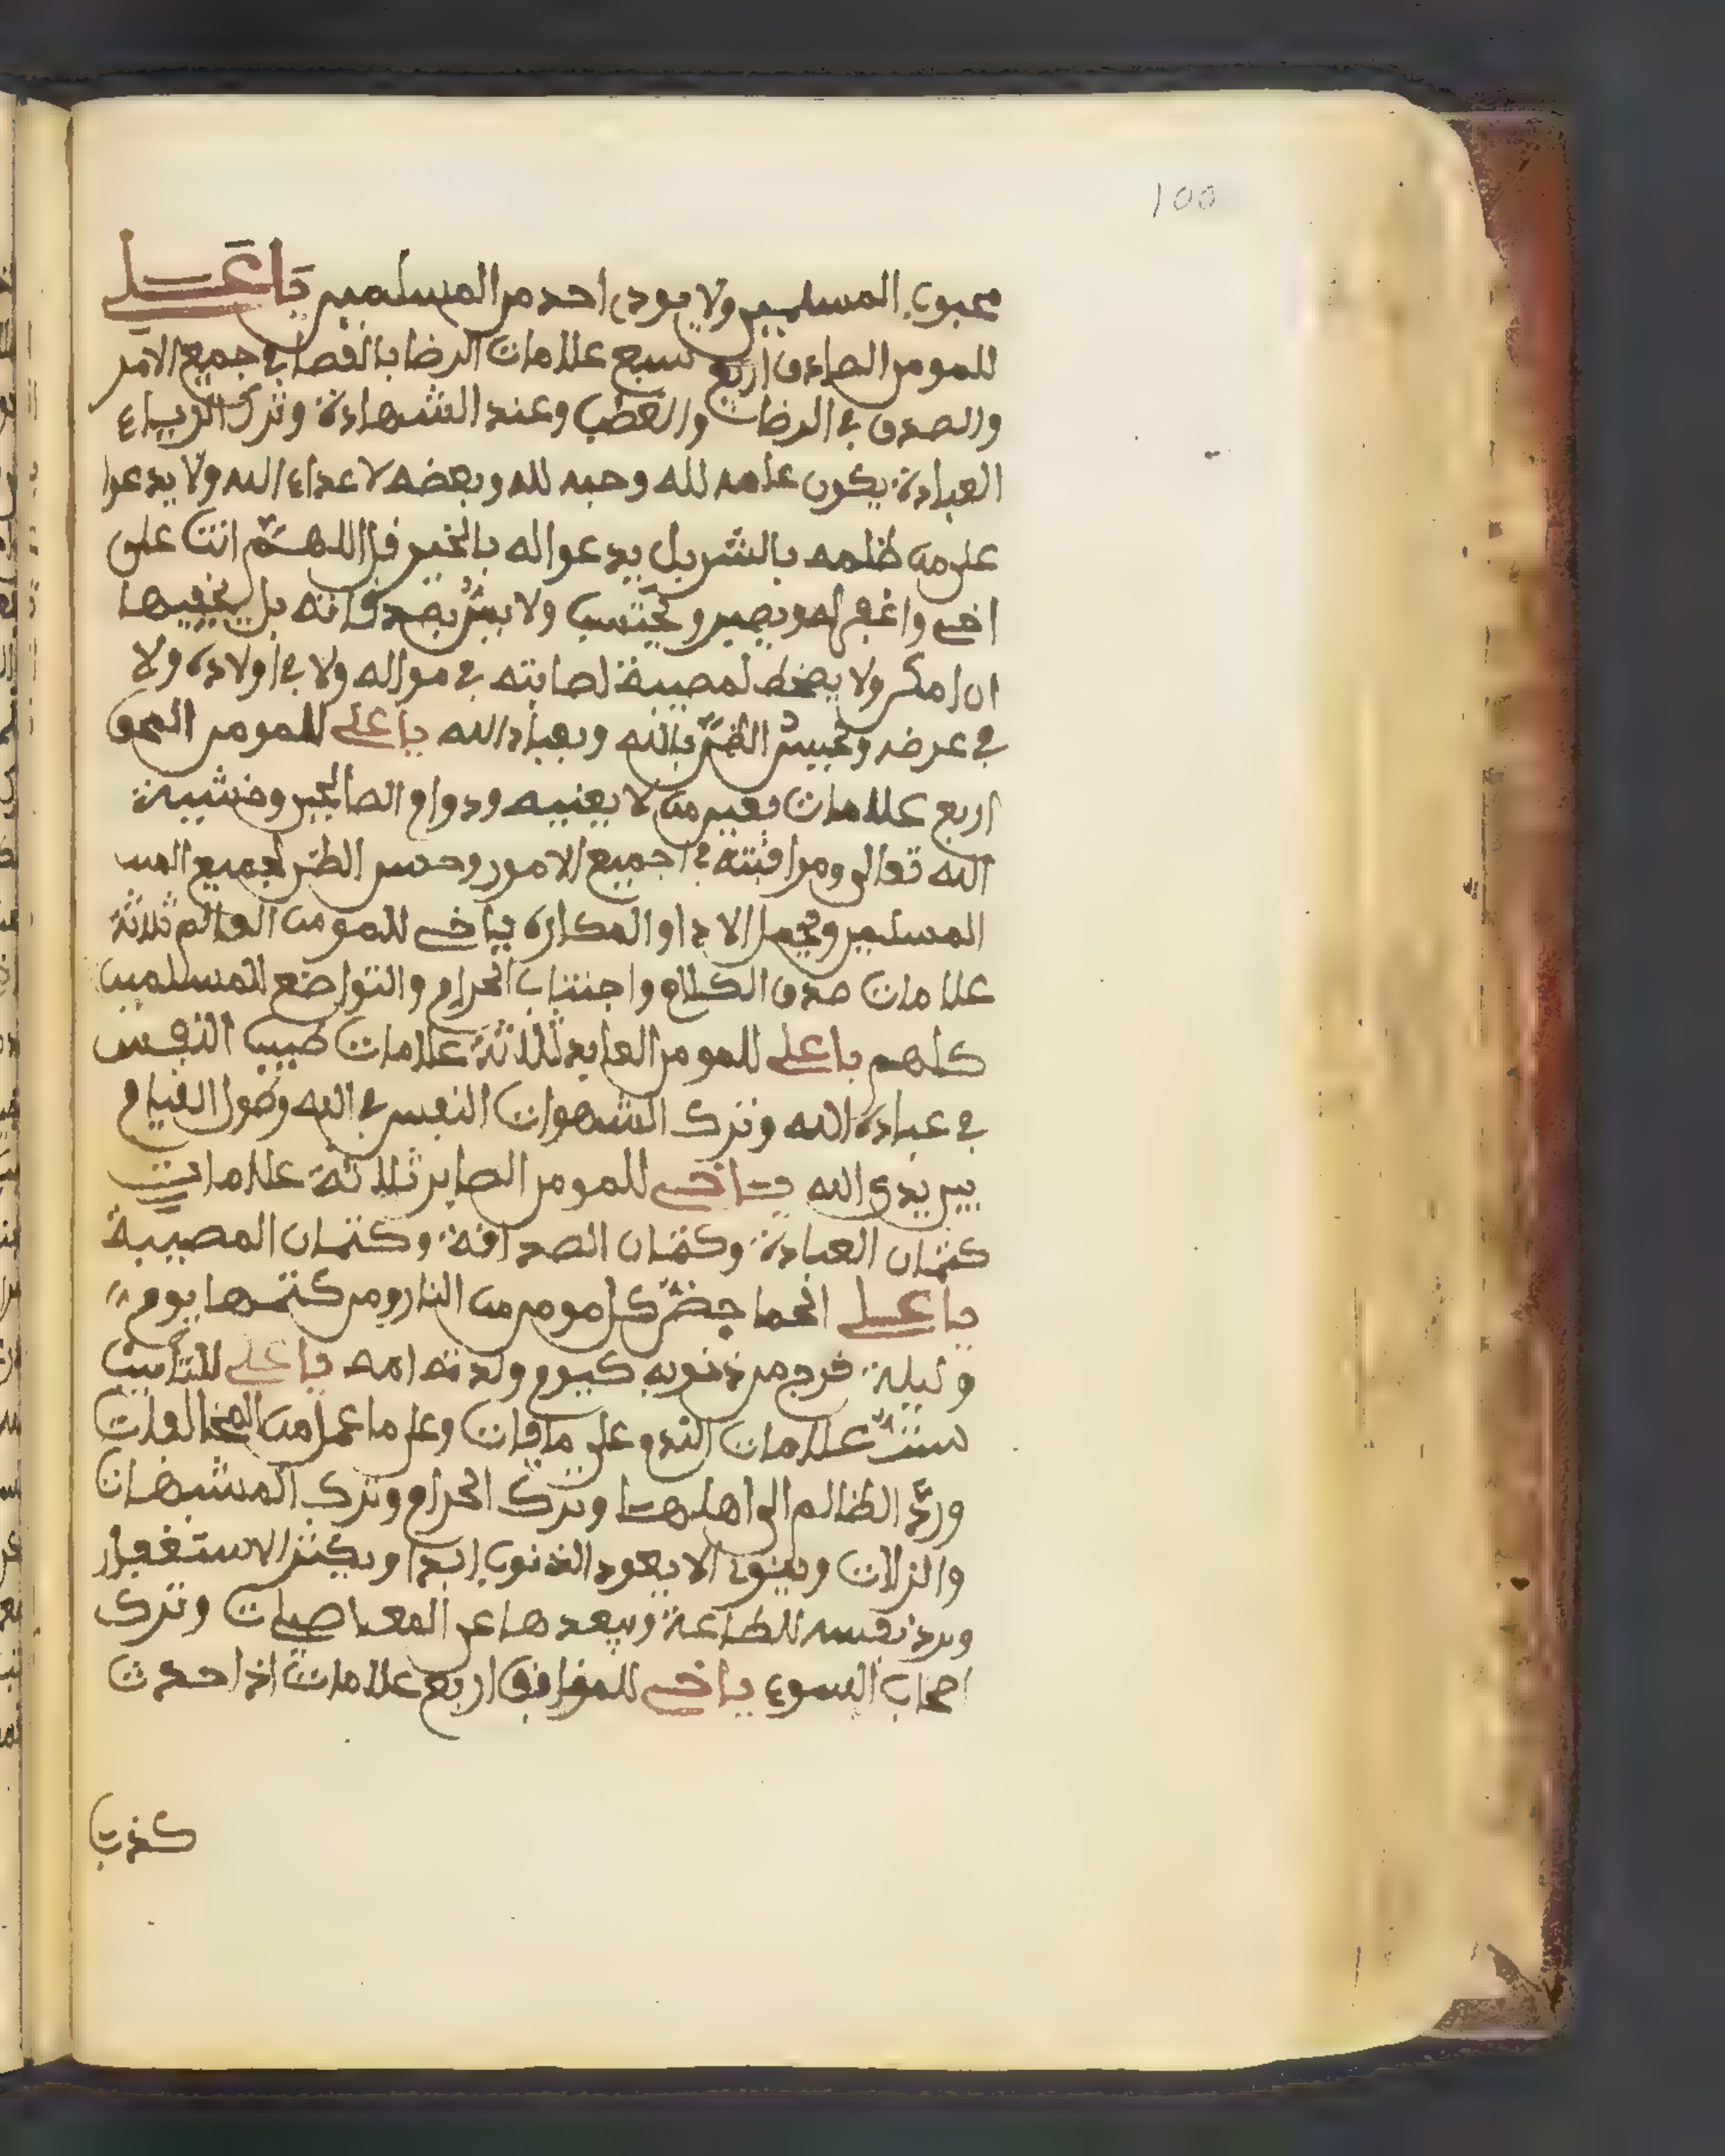 100
محبوب المسلمين ولا يودى احد من المسلمين يا علي
للمومن الصادق اربع سبع علامات الرضا بالقضا في جميع الامر
والصدق في الرضات والغضب وعند الشهادة وترك الرياء
العبادة يكون علمه لله وحبه لله وبغضه لاعداء الله ولا يدعوا
على من ظلمه بالشر بل يدعوا له بالخير قال اللهم انت على
اخي واغفر له ويصبر و يحتسب ولا يبشر بصدقاته بل يخفيها
ان امكن ولا يضخط لمصيبة لصابته في مواله ولا في اولاده ولا
في عرضه و الظن بالله وبعباد الله يا علي للمومن المحق
اربع علامات من لا يعنيه ودوام الصالحين وخشيية
الله تعالى ومراقبته في جميع الامور وحسن الظن لجميع المس
المسلمين وتحمل الاذا والمكاره يا خي للمومن العالم ثلاثة
علامات صدق الكلام واجتناب الحرام والتواضع للمسلمين
كلهم يا علي للمومن العابد ثلاثة علامات طيب النفس
في عبادة الله وترك الشهوات النفس في الله وطول القيام
بين يدي الله يا خي للمومن الصابر ثلاثة علامات
كتمان العبادة وكتمان الصداقة وكتمان المصيبة
يا علي الحما حض كل مومن من النار ومن كتمها يوم
وليلة خرج من ذنوبه كيوم ولدته امه يا علي للتايب
ست علامات الندم على ما فات وعلى ما عمل من المخالفات
ورد الظالم الى اهلها وترك الحرام وترك المشبهات
والزلات وينوى الا يعود الذنوب ابدا ويكثر الاستغفار
ويرد نفسه للطاعة ويبعدها عن المعاصيات وترك
اصحاب السوء يا خي للموافق اربع علامات اذا حدث
كذب